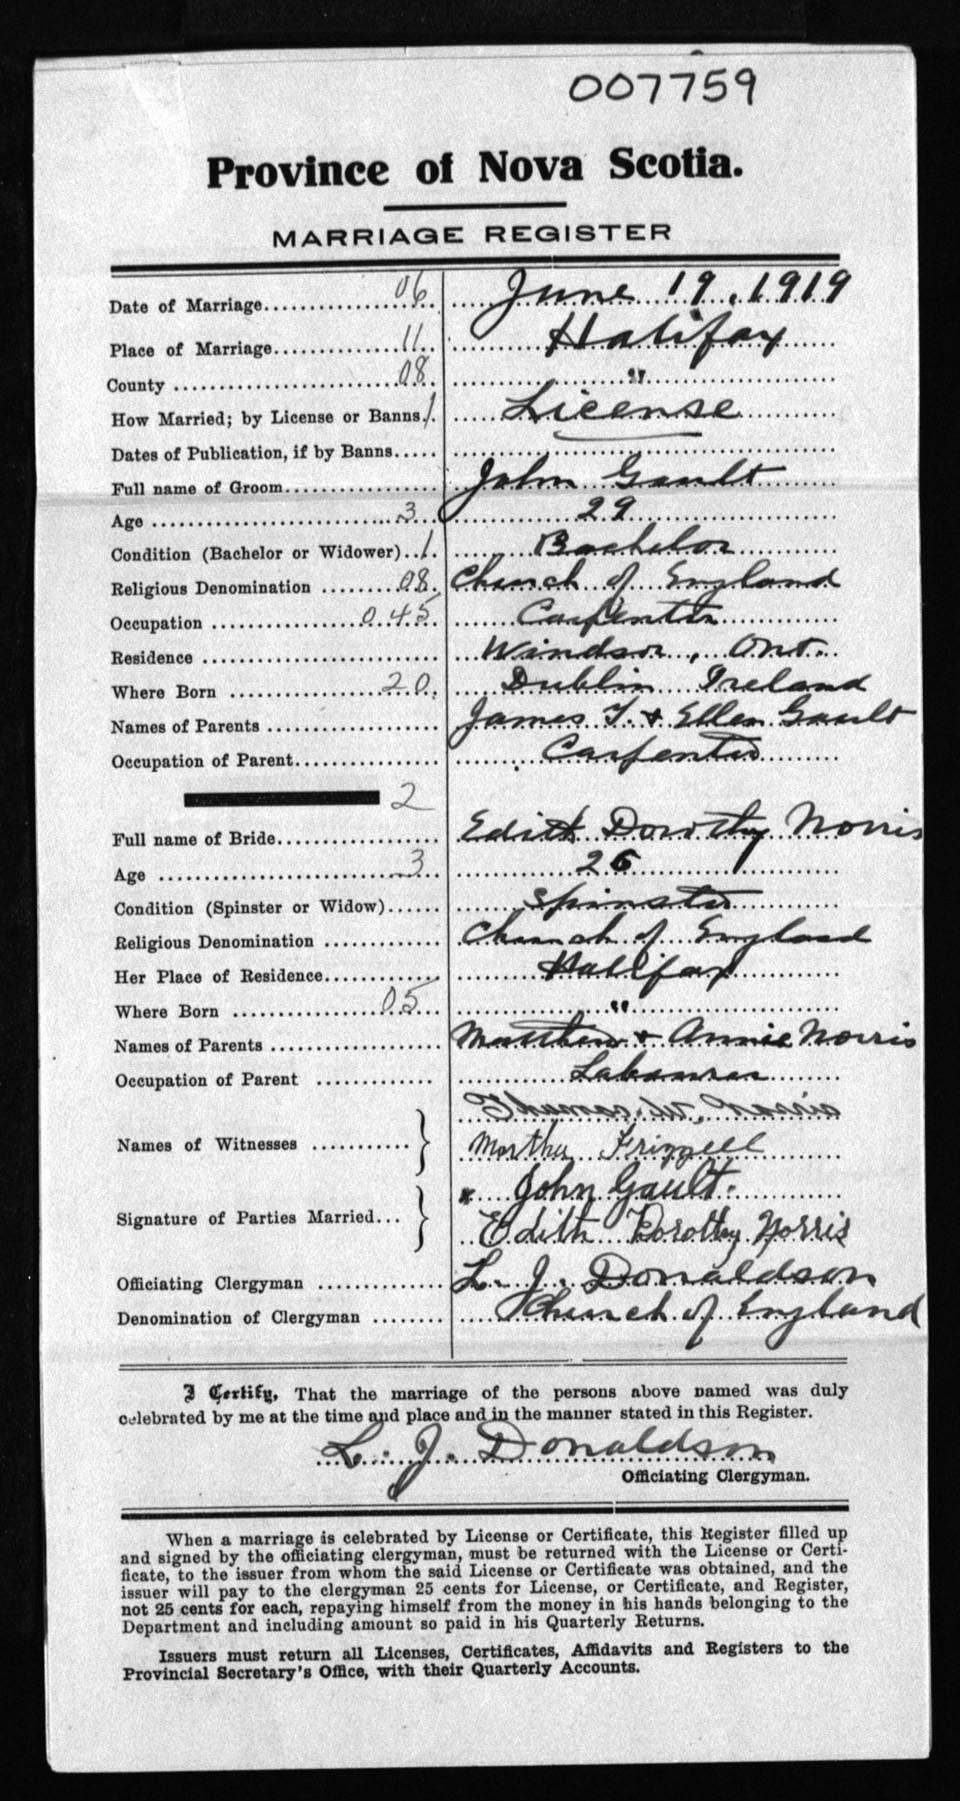 007759
Province of Nova Scotia.
MARRIAGE REGISTER
Date of Marriage 06 June 19, 1919
Place of Marriage 11 Halifax
County 08 "
How Married; by License or Banns 1 License
Dates of Publication, if by Banns
Full name of Groom John Gault
Age 3 29
Condition (Bachelor or Widower) 1 Bachelor
Religious Denomination 08 Church of England
Occupation 045 Carpenter
Residence Windsor, Ont.
Where Born 20 Dublin Ireland
Names of Parents James T. & Ellen Gault
Occupation of Parent Carpenter
2
Full name of Bride Edith Dorothy Norris
Age 3 26
Condition (Spinster or Widow) Spinster
Religious Denomination Church of England
Her Place of Residence Halifax
Where Born 05 "
Names of Parents Matthew & Annie Norris
Occupation of Parent Labourer
Names of Witnesses Thomas
Martha Frizzell
Signature of Parties Married x John Gault.
Edith Dorothy Norris
Officiating Clergyman L. J. Donaldson
Denomination of Clergyman Church of England
I Certify, That the marriage of the persons above named was duly
celebrated by me at the time and place and in the manner stated in this Register.
L. J. Donaldson
Officiating Clergyman.
When a marriage is celebrated by License or Certificate, this Register filled up
and signed by the officiating clergyman, must be returned with the License or Certi-
ficate, to the issuer from whom the said License or Certificate was obtained, and the
issuer will pay to the clergyman 25 cents for License, or Certificate, and Register,
not 25 cents for each, repaying himself from the money in his hands belonging to the
Department and including amount so paid in his Quarterly Returns.
Issuers must return all Licenses, Certificates, Affidavits and Registers to the
Provincial Secretary's Office, with their Quarterly Accounts.